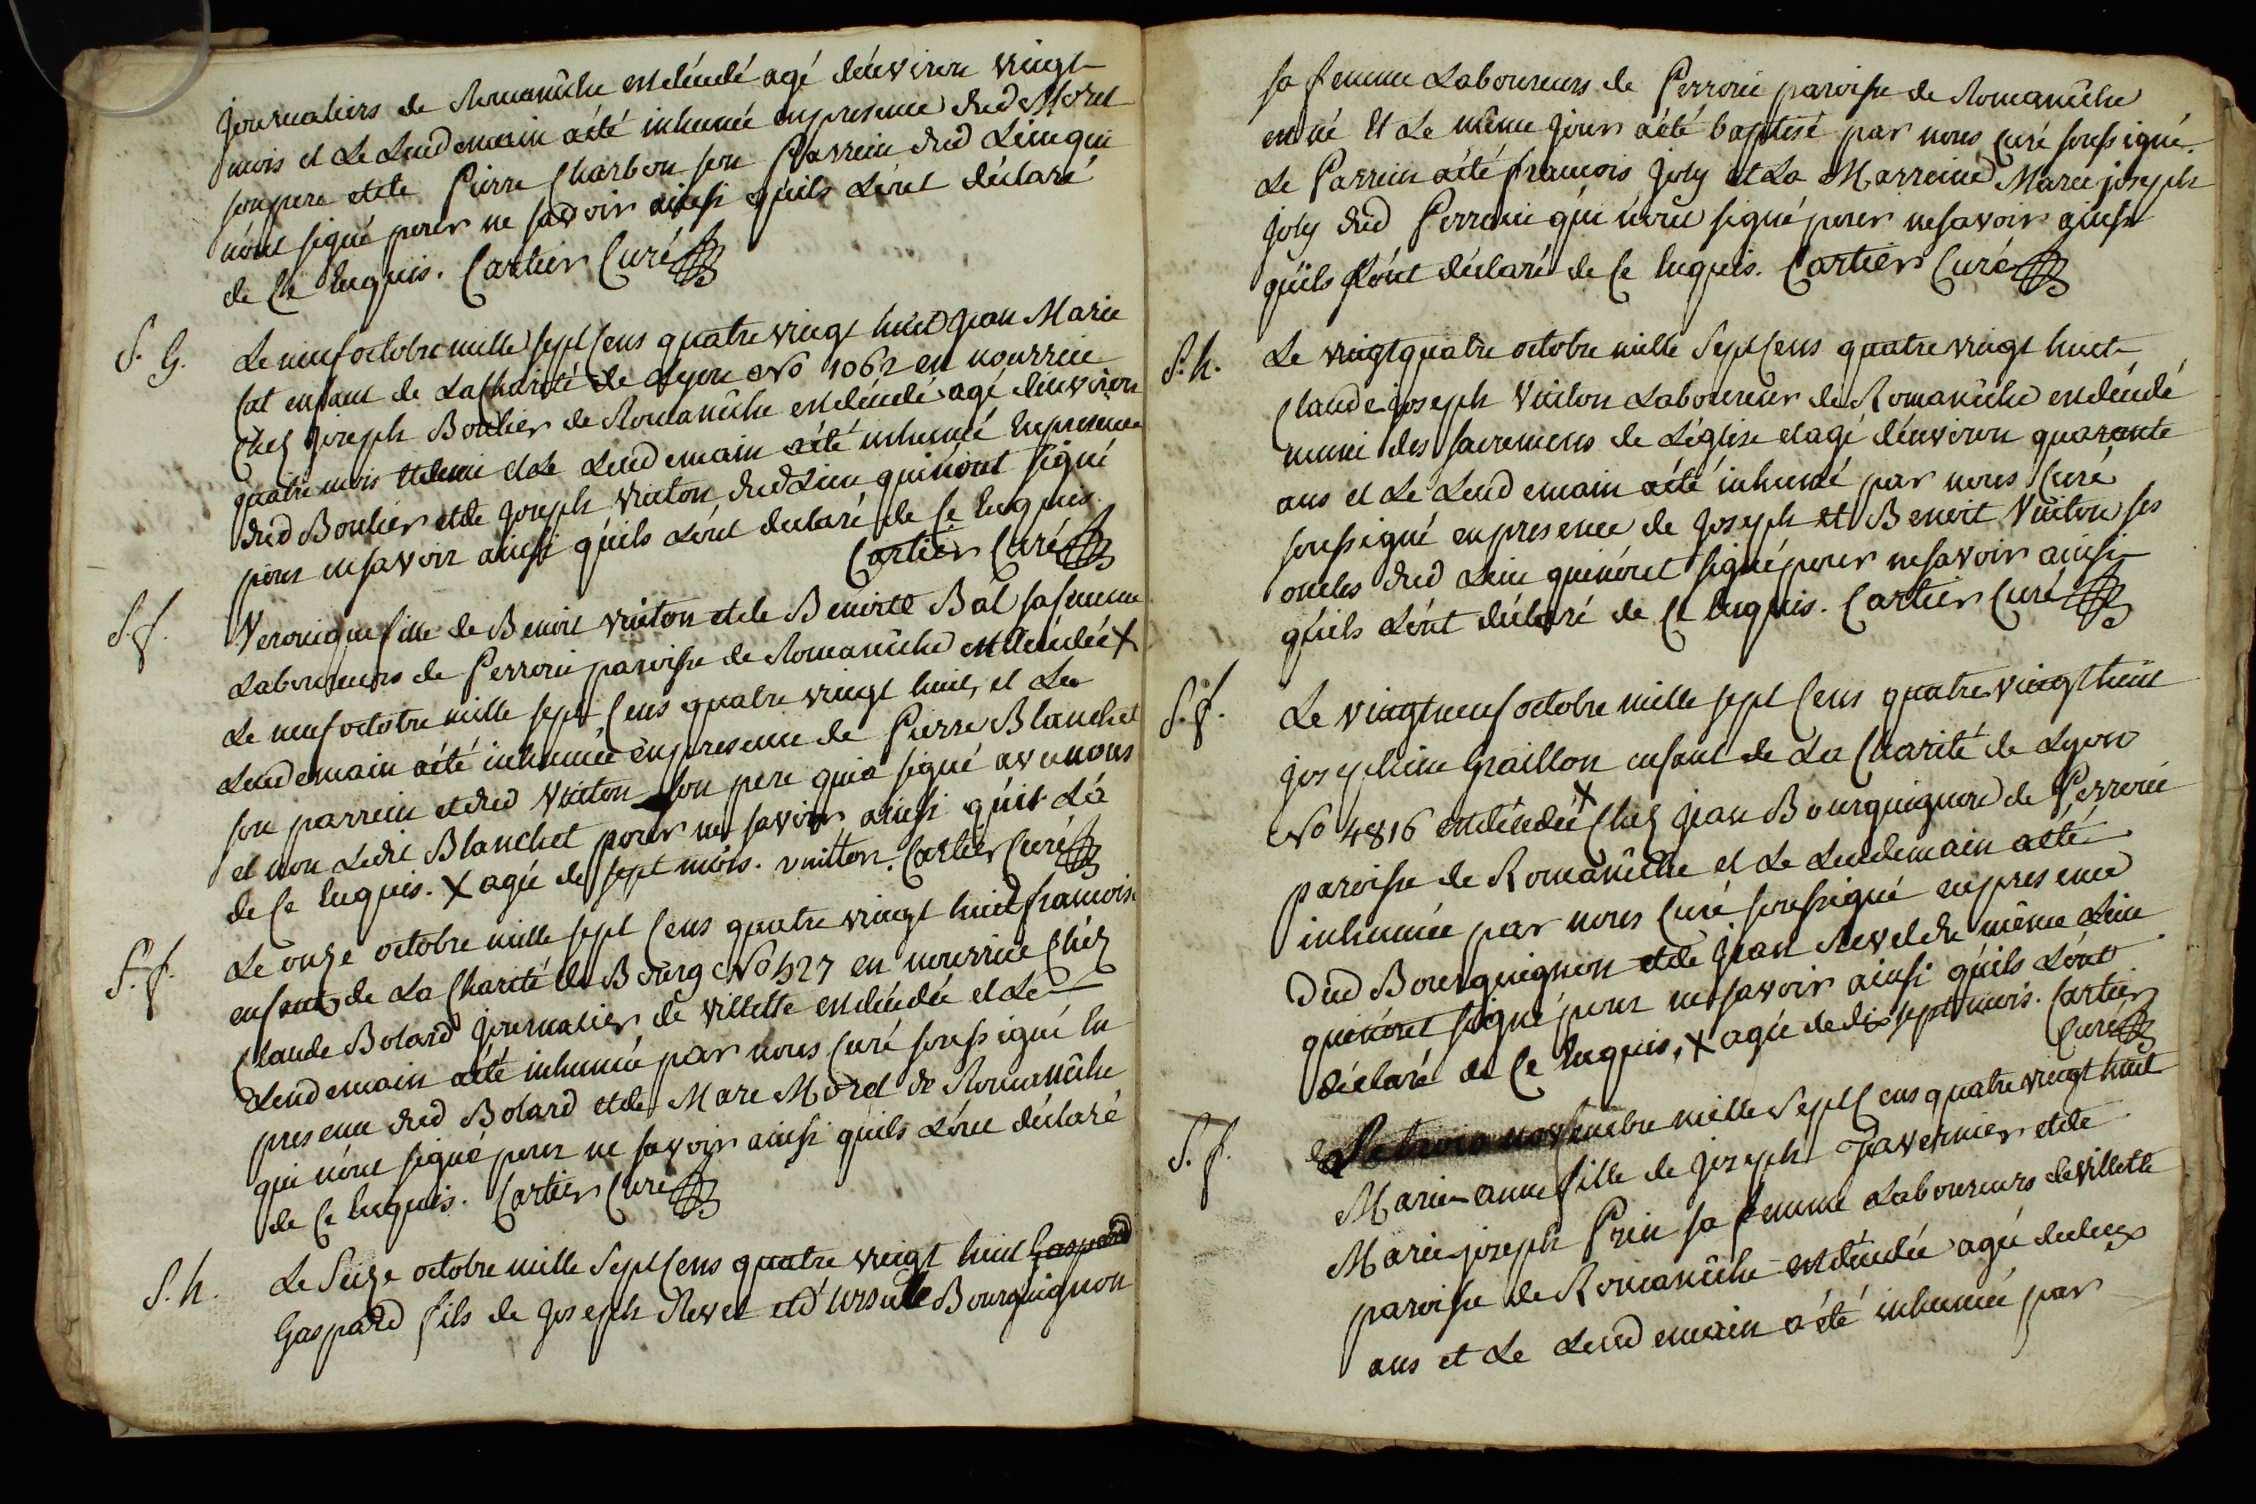 journaliers de Romanêche est décédé agé d'environ vingt
mois et Le Lendemain a été inhumé en presence dud Morel
son pere et de Pierre Charbon son Parrein dud Lieu qui
n'ont signé pour ne savoir ainsi qu'ils L'ont déclaré
de Ce Enquis. Cartier Curé
S. G. Le neuf octobre mille sept Cens quatre vingt huit Jean Marie
Cat enfant de La Charité de Lyon No 1062 en nourrice
Chez Joseph Boulier de Romanêche est décédé agé d'environ
quatre mois et demi et Le Lendemain a été inhumé en presence
dud Boulier et de Joseph Vuiton dud Lieu qui n'ont signé
pour ne savoir ainsi qu'ils L'ont declaré de Ce Enquis.
Cartier Curé
S. f. Veronique fille de Benoit Vuiton et de Benoite Bal sa femme
Laboureurs de Perroni paroisse de Romanêche est décédée X
Le neuf octobre mille sept Cens quatre vingt huit, et Le
Lendemain a été inhumée en presence de Pierre Blanchet
son parrein et dud Vuiton son pere qui a signé avec nous
et non Ledit Blanchet pour ne savoir ainsi qu'il L'a
de Ce Enquis. X agée de sept mois. vuitton. Cartier Curé
S. f. Le onze octobre mille sept Cens quatre vingt huit francoise
enfant de La Charité de Bourg No 527 en nourrice Chéz
Claude Bolard journalier de Villette est décédée et Le
Lendemain a été inhumée par nous Curé soussigné En
presence dud Bolard et de Marc Morel de Romanêche
qui n'ont signé pour ne savoir ainsi qu'ils L'ont déclaré
de Ce Enquis. Cartier Curé
S. h. Le Seize octobre mille Sept Cens quatre vingt huit Gaspard
Gaspard fils de Joseph Revel et d'Ursule Bourguignon
sa femme Laboureurs de Perroni paroisse de Romanêche
est né Et Le même jour a été baptisé par nous Curé soussigné.
Le Parrein a été francois Joly et La Marreine Marie joseph
Joly dud Perroni qui n'ont signé pour ne savoir ainsi
qu'ils L'ont déclaré de Ce Enquis. Cartier Curé
S. h. Le vingt quatre octobre mille Sept Cens quatre vingt huit
Claude joseph Vuiton Laboureur de Romanêche est décédé
muni des sacremens de L'église et agé d'environ quarante
ans et Le Lendemain a été inhumé par nous Curé
soussigné en presence de Joseph et Benoit Vuiton ses
oncles dud Lieu qui n'ont signé pour ne savoir ainsi
qu'ils L'ont déclaré de Ce Enquis. Cartier Curé
S. f. Le vingt neuf octobre mille sept Cens quatre vingt huit
Josephine Graillon enfant de La Charité de Lyon
No 4816 est décédée X Chez Jean Bourguignon de Perroni
paroisse de Romanêche et Le Lendemain a été
inhumée par nous Curé soussigné en presence
dud Bourguignon et de Jean Revel du même Lieu
qui n'ont signé pour ne savoir ainsi qu'ils L'ont
déclaré de Ce Enquis, X agée de dix sept mois. Cartier
Curé
S. f. Le trois novembre mille Sept Cens quatre vingt huit
Marie-anne fille de Joseph Tavernier et de
Marie joseph Prin sa femme Laboureurs de Villette
paroisse de Romanêche est décédée agée de deux
ans et Le Lendemain a été inhumée par